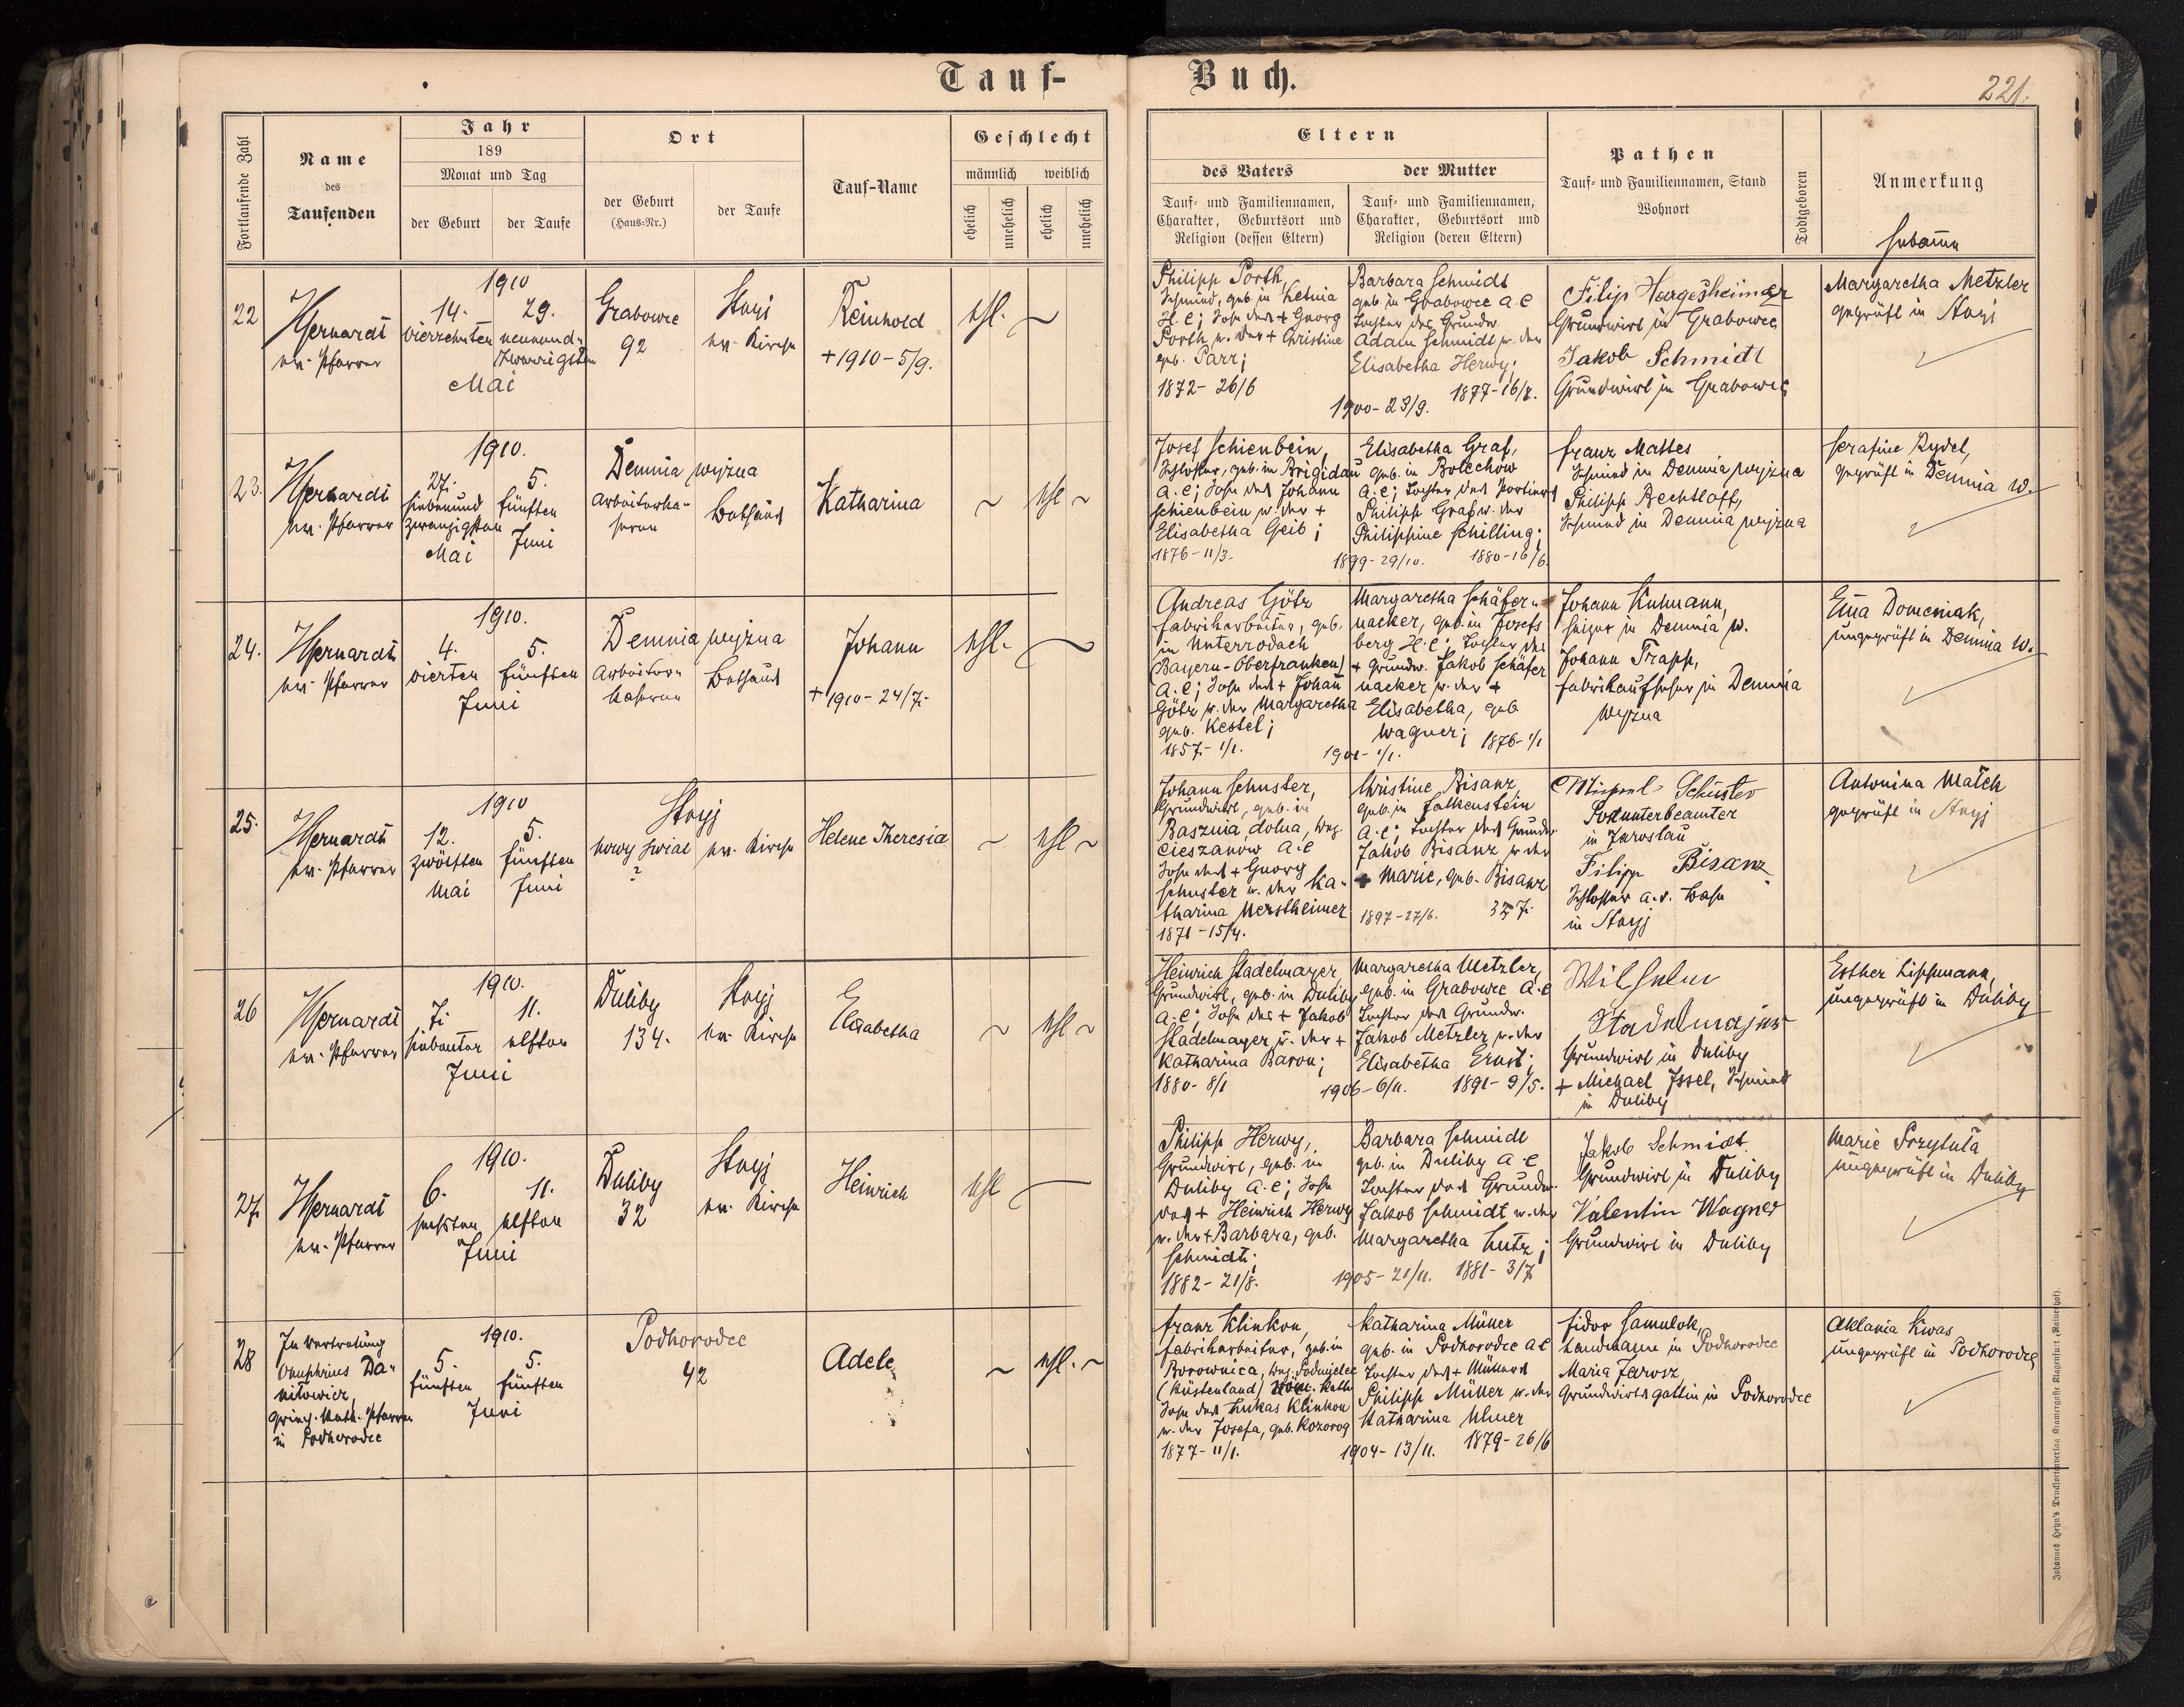 Tauf-
Buch.
221.
Fortlaufende Zahl
Name
des
Taufenden
Jahr
189
Monat und Tag
der Geburt
der Taufe
Ort
der Geburt
(Haus-Nr.)
der Taufe
Tauf-Name
Geschlecht
männlich
weiblich
ehelich
unehelich
ehelich
unehelich
Eltern
des Vaters
Tauf- und Familiennamen,
Charakter, Geburtsort und
Religion (dessen Eltern)
der Mutter
Tauf- und Familiennamen,
Charakter, Geburtsort und
Religion (deren Eltern)
Pathen
Tauf- und Familiennamen, Stand
Wohnort
Todtgeboren
Anmerkung
Hebamme
22
ev. Pfarrer
1910
14.
vierzehnten
29.
neunund-
zwanzigsten
Mai
Grabowce
92
Stryj
ev. Kirche
Reinhold
+ 1910 - 5/9.
ehl. ~
Philipp Porth,
Schmied, geb. in Ketnia
H.C; Sohn des + Georg
Porth u. der + Christine
geb. Parr;
1872 - 26/6
Barbara Schmidt
geb. in Grabowce A C
Tochter des Grundw.
Adam Schmidt u. der
Elisabetha Herwy;
1877 - 16/8.
1900 - 23/9.
Filip Hargesheimer
Grundwirt in Grabowce
Jakob Schmidt
Grundwirt in Grabowce
Margaretha Metzler
geprüft in Stryj
23.
ev. Pfarrer
1910.
27.
siebenund
zwanzigsten
Mai
5.
fünften
Juni
Demnia wyzna
Arbeiterka-
serne
Bethaus
Katharina
~ ehl ~
Josef Schienbein,
Schlosser, geb. in Brigidau
A.C; Sohn des Johann
Schienbein u. der +
Elisabetha Geib;
1876 - 11/3.
Elisabetha Graf,
geb. in Bolechow
A.C; Tochter des Portiers
Philipp Graf u. der
Philippine Schilling;
1880 - 16/6.
1899 - 29/10.
Franz Mattes
Schmied in Demnia wyzna
Philipp Bechtloff,
Schmied in Demnia wyzna
Serafine Rydel,
geprüft in Demnia w.
24.
ev. Pfarrer
1910.
4.
vierten
5.
fünften
Juni
Demnia wyzna
Arbeiter-
kaserne
Bethaus
Johann
+ 1910 - 24/7.
ehl. ~
Andreas Götz
Fabrikarbeiter, geb.
in Unterrodach
(Bayern-Oberfranken)
A.C; Sohn des + Johan̅
Götz u. der Margaretha
geb. Kestel;
1857 - 1/1.
Margaretha Schäfer-
nacker, geb. in Josefs
berg H.C; Tochter des
+ Grundw. Jakob Schäfer
nacker u. der +
Elisabetha, geb
Wagner; 1876 - 1/1
1901 - 1/1.
Johann Kuhmann,
Heizer in Demnia w.
Johann Trapp,
Fabrikaufseher in Demnia
wyzna
Em̅a Domeniak,
ungeprüft in Demnia w.
25.
ev. Pfarrer
1910
12.
zwölften
Mai
5.
fünften
Juni
Stryj
nowy swiat
?
ev. Kirche
Helene Theresia
~ ehl ~
Johann Schuster,
Grundwirt, geb. in
Basznia dolna, bez.
Cieszanow A.C
Sohn des + Georg
Schuster u. der Ka-
tharina Merstheimer
1871 - 15/4.
Christine Bisanz
geb. in Falkenstein
A.C; Tochter des Grundw.
Jakob Bisanz u der
+ Marie, geb. Bisanz
1897 - 27/6.
Schuster
Postunterbeamter
in Jaroslau
Filipp Bisanz
Schlosser a.d. Bahn
in Stryj
Antonina Malek
geprüft in Stryj
26
ev. Pfarrer
1910.
7.
siebenter
11.
elften
Juni
Duliby
134.
Stryj
ev. Kirche
Elisabetha
~ ehl ~
Heinrich Stadelmayer
Grundwirt, geb. in Duliby
A.C; Sohn des + Jakob
Stadelmayer u. der +
Katharina Baron;
1880 - 8/1
Margaretha Metzler,
geb. in Grabowce A.C
Tochter des Grundw.
Jakob Metzler u. der
Elisabetha Ernst;
1906 - 6/11. 1891 - 9/5.
Wilhelm
Stadelmajer
Grundwirt in Duliby
+ Michael Issel, Schmied
in Duliby
Esther Lippmann,
ungeprüft in Duliby
27.
ev. Pfarrer
1910.
6.
sechsten
11.
elften
Juni
Duliby
32
Stryj
ev. Kirche
Heinrich
ehl ~
Philipp Herwy,
Grundwirt, geb. in
Duliby A.C; Sohn
des + Heinrich Herwy
u. der + Barbara, geb.
Schmidt;
1882 - 21/8.
Barbara Schmidt
geb. in Duliby A C
Tochter des Grundw.
Jakob Schmidt u. der
Margaretha Lutz;
1905 - 21/11. 1881 - 3/7.
Jakob Schmidt
Grundwirt in Duliby
Valentin Wagner
Grundwirt in Duliby
Marie Przytula
ungeprüft in Duliby
28
In Vertretung
Onuphrius Da-
nilowicz,
griech. kath. Pfarrer
in Podhorodce
1910.
5.
fünften
5.
fünften
Juni
Podhorodce
42
Adele
~ ehl. ~
Franz Klinkon,
Fabriksarbeiter, geb. in
Borownica, bez. Podmjelec
(Küstenland) röm. kath
Sohn des Lukas Klinkon
u. der Josefa, geb. Kozorog
1877 - 11/1.
Katharina Müller
geb. in Podhorodce A C
Tochter des + Müllers
Philipp Müller u. der
Katharina Ulmer
1904 - 13/11. 1879 - 26/6
Fidor Hamulok,
Landmann in Podhorodce
Maria Jarosz
Grundwirtsgattin in Podhorodce
Aklania Kwas
ungeprüft in Podhorodce